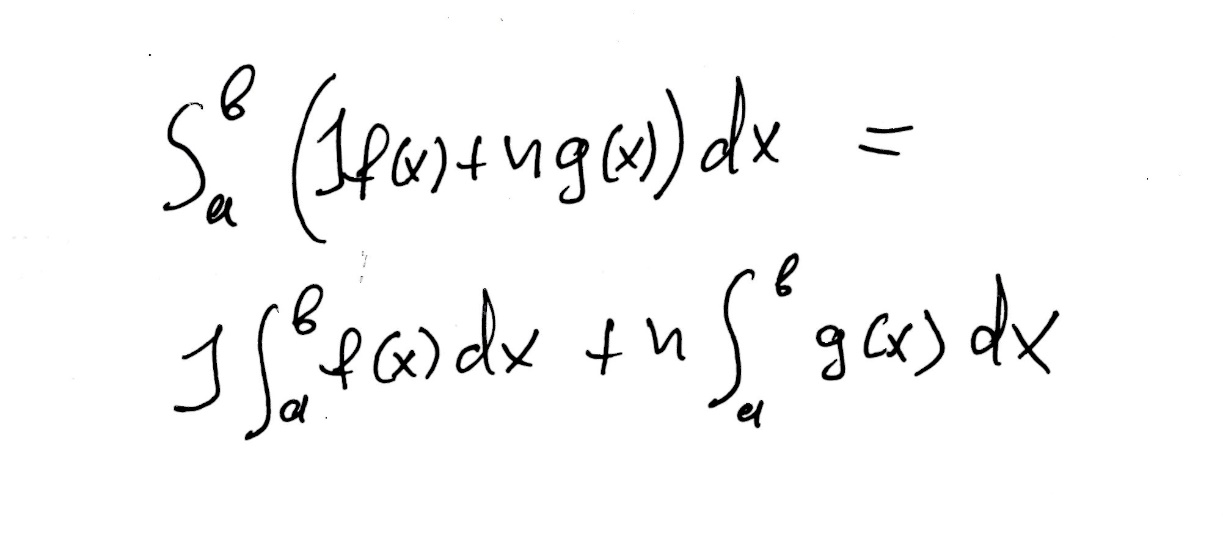 ∫ₐᵇ (Jf(x)+ng(x))dx =
J∫ₐᵇ f(x)dx + n∫ₐᵇ g(x)dx